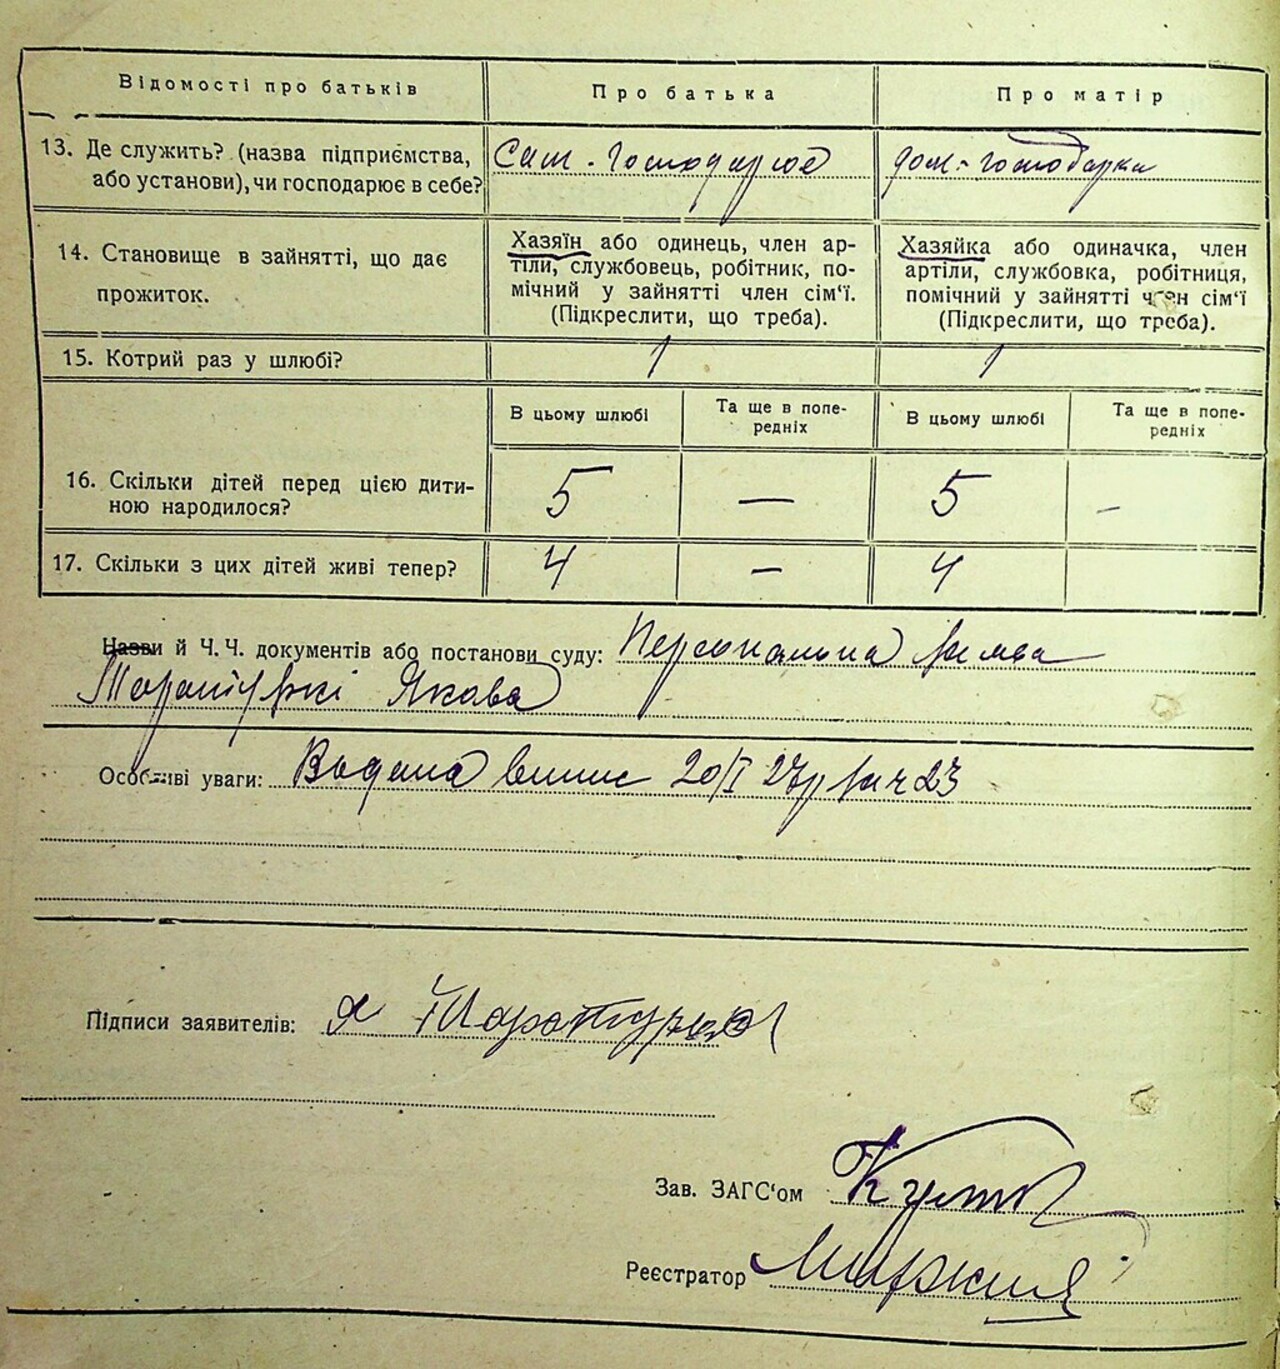 Відомості про батьків Про батька Про матір
13. Де служить? (назва підприємства, Сам. Господарює дом.-господарка
або установи), чи господарює в себе?
14. Становище в зайнятті, що дає прожиток.
Хазяїн або одинець, член ар-
тілі, службовець, робітник, по-
мічний у зайнятті член сім‘ї.
(Підкреслити, що треба).
Хазяйка або одиначка, член
артілі, службовка, робітниця,
помічний у зайнятті член сім‘ї
(Підкреслити, що треба).
15. Котрий раз у шлюбі? 1 1
В цьому шлюбі Та ще в попе-
редніх В цьому шлюбі Та ще в попе-
редніх
16. Скільки дітей перед цією дити- 5 — 5 -
ною народилося?
17. Скільки з цих дітей живі тепер? 4 — 4
Назви й Ч. Ч. документів або постанови суду: Персональна заява
Якова
Особливі уваги: Видана випис 20/I 27р за ч 23
Підписи заявителів: Я
Зав. ЗАГС‘ом
Реєстратор